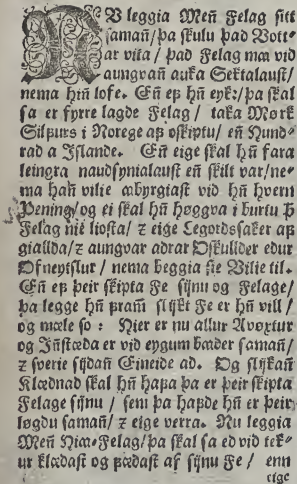 NU leggia Meñ Felag sitt
samañ/ þa skulu þad Vott-
ar vita/ þad Felag ma vid
aungvañ auka Sektalaust/
nema hiñ lofe. Eñ ef hiñ eyk:/ þa skal
sa er fyrre lagde Felag/ taka Mørk
Silfurs i Norege af oskiptu/ eñ Hund-
rad a Islande. Eñ eige skal hñ fara
leingra naudsynialaust eñ skilt var/ ne-
ma hañ vilie abyrgiast vid hñ hvern
Pening/ og ei skal hñ høggva i burtu þ
Felag nie liosta/ z eige Legordssaker af
giallda/ z aungvar adrar Oskullder edur
Ofneytslur/ nema beggia sie Vilie til.
Eñ ef þeir skipta Fe sijnu og Felage/
þa legge hñ fram slijkt Fe er hñ vill/
og mæle so: Hier er nu allur Avoxtur
og Iñstæda er vid eygum bæder samañ/
z sverie sijdañ Eineide ad. Og slijkañ
Klædnad skal hñ hafa þa er þeir skipta
Felage sijnu/ sem þa hafde hñ er þeir
løgdu samañ/ z eige verra. Nu leggia
Meñ Hia-Felag/ þa skal sa ed vid tek-
ur klædast og fædast af sijnu Fe/ enn
eige